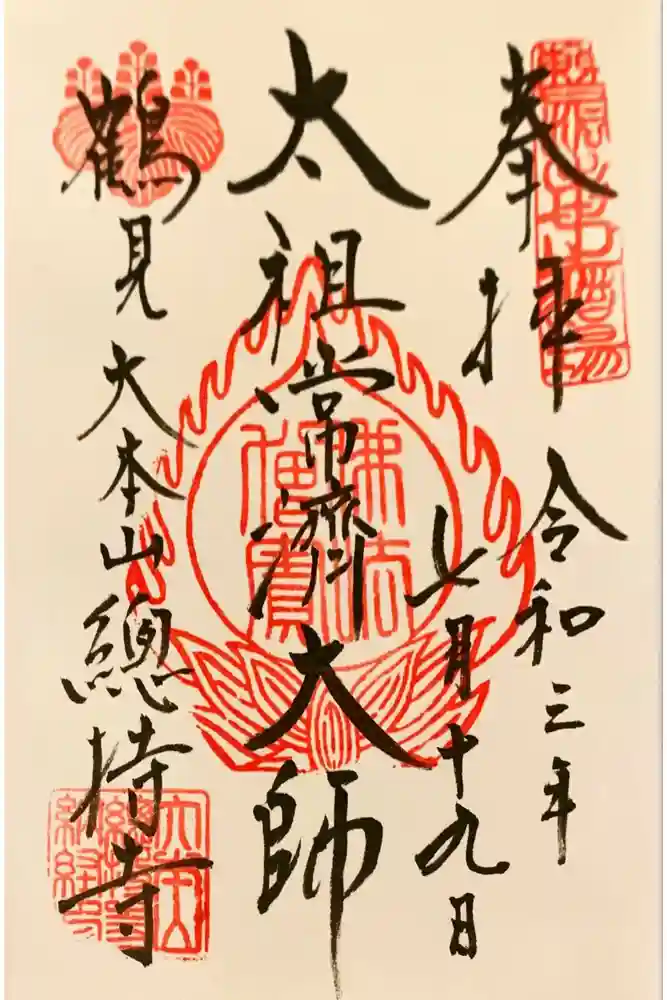 奉拝
令和三年
七月十九日
太祖常濟大師
佛法
僧寶
鶴見大本山總持寺